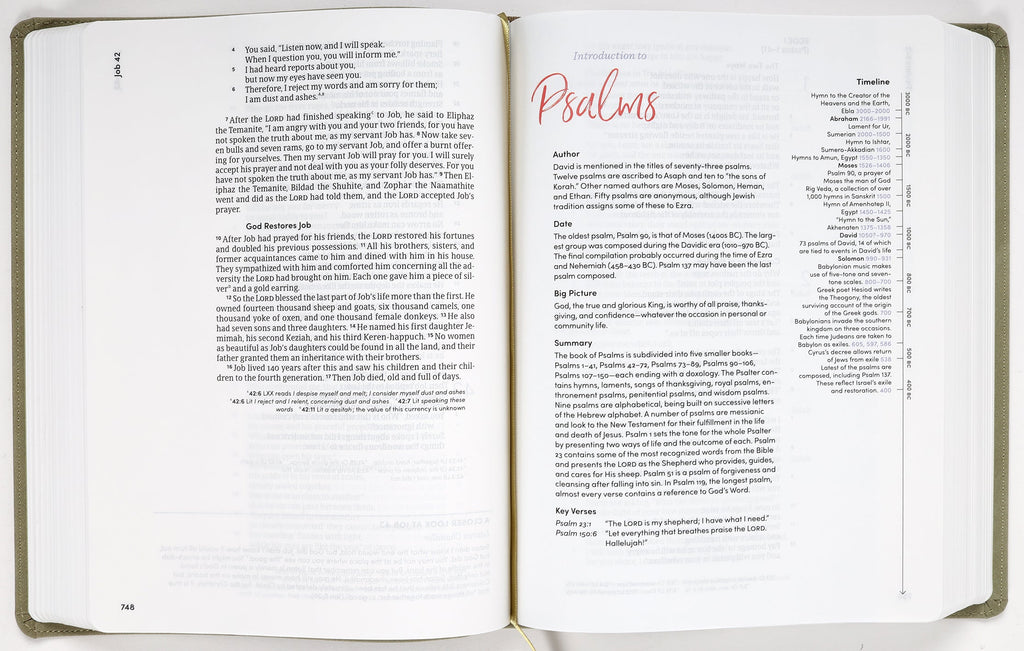 Job 42
4 You said, “Listen now, and I will speak.
When I question you, you will inform me.”
5 I had heard reports about you,
but now my eyes have seen you.
6 Therefore, I reject my words and am sorry for them;
I am dust and ashes.
7 After the LORD had finished speaking to Job, he said to Eliphaz
the Temanite, “I am angry with you and your two friends, for you have
not spoken the truth about me, as my servant Job has. 8 Now take sev-
en bulls and seven rams, go to my servant Job, and offer a burnt offer-
ing for yourselves. Then my servant Job will pray for you. I will surely
accept his prayer and not deal with you as your folly deserves. For you
have not spoken the truth about me, as my servant Job has.” 9 Then El-
iphaz the Temanite, Bildad the Shuhite, and Zophar the Naamathite
went and did as the LORD had told them, and the LORD accepted Job’s
prayer.
God Restores Job
10 After Job had prayed for his friends, the LORD restored his fortunes
and doubled his previous possessions. 11 All his brothers, sisters, and
former acquaintances came to him and dined with him in his house.
They sympathized with him and comforted him concerning all the ad-
versity the LORD had brought on him. Each one gave him a piece of sil-
ver and a gold earring.
12 So the LORD blessed the last part of Job’s life more than the first. He
owned fourteen thousand sheep and goats, six thousand camels, one
thousand yoke of oxen, and one thousand female donkeys. 13 He also
had seven sons and three daughters. 14 He named his first daughter Je-
mimah, his second Keziah, and his third Keren-happuch. 15 No women
as beautiful as Job’s daughters could be found in all the land, and their
father granted them an inheritance with their brothers.
16 Job lived 140 years after this and saw his children and their chil-
dren to the fourth generation. 17 Then Job died, old and full of days.
42:6 LXX reads I despise myself and melt; I consider myself dust and ashes
42:6 Lit I reject and I relent, concerning dust and ashes 42:7 Lit speaking these
words 42:11 Lit a qesitah; the value of this currency is unknown
748
Introduction to
Psalms
Author
David is mentioned in the titles of seventy-three psalms.
Twelve psalms are ascribed to Asaph and ten to “the sons of
Korah.” Other named authors are Moses, Solomon, Heman,
and Ethan. Fifty psalms are anonymous, although Jewish
tradition assigns some of these to Ezra.
Date
The oldest psalm, Psalm 90, is that of Moses (1400s BC). The larg-
est group was composed during the Davidic era (1010–970 BC).
The final compilation probably occurred during the time of Ezra
and Nehemiah (458–430 BC). Psalm 137 may have been the last
psalm composed.
Big Picture
God, the true and glorious King, is worthy of all praise, thanks-
giving, and confidence—whatever the occasion in personal or
community life.
Summary
The book of Psalms is subdivided into five smaller books—
Psalms 1–41, Psalms 42–72, Psalms 73–89, Psalms 90–106,
Psalms 107–150—each ending with a doxology. The Psalter con-
tains hymns, laments, songs of thanksgiving, royal psalms, en-
thronement psalms, penitential psalms, and wisdom psalms.
Nine psalms are alphabetical, being built on successive letters
of the Hebrew alphabet. A number of psalms are messianic
and look to the New Testament for their fulfillment in the life
and death of Jesus. Psalm 1 sets the tone for the whole Psalter
by presenting two ways of life and the outcome of each. Psalm
23 contains some of the most recognized words from the Bible
and presents the LORD as the Shepherd who provides, guides,
and cares for His sheep. Psalm 51 is a psalm of forgiveness and
cleansing after falling into sin. In Psalm 119, the longest psalm,
almost every verse contains a reference to God’s Word.
Key Verses
Psalm 23:1 “The LORD is my shepherd; I have what I need.”
Psalm 150:6 “Let everything that breathes praise the LORD.
Hallelujah!”
Timeline
Hymn to the Creator of the
Heavens and the Earth,
Ebla 3000–2000
Abraham 2166–1991
Lament for Ur,
Sumerian 2000–1500
Hymn to Ishtar,
Sumero-Akkadian 1600
Hymns to Amun, Egypt 1550–1350
Moses 1526–1406
Psalm 90, a prayer of
Moses the man of God
Rig Veda, a collection of over
1,000 hymns in Sanskrit 1500
Hymn of Amenhotep II,
Egypt 1450–1425
“Hymn to the Sun,”
Akhenaten 1375–1358
David 1050?–970
73 psalms of David, 14 of which
are tied to events in David’s life
Solomon 990–931
Babylonian music makes
use of five-tone and seven-
tone scales. 800–700
Greek poet Hesiod writes
the Theogony, the oldest
surviving account of the origin
of the Greek gods. 700
Babylonians invade the southern
kingdom on three occasions.
Each time Judeans are taken to
Babylon as exiles. 605, 597, 586
Cyrus’s decree allows return
of Jews from exile 538
Latest of the psalms are
composed, including Psalm 137.
These reflect Israel’s exile
and restoration. 400
3000 BC
2000 BC
1500 BC
1000 BC
800 BC
700 BC
500 BC
400 BC